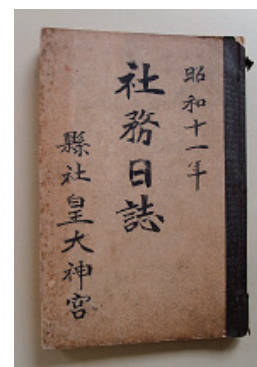 昭和十一年
社務日誌
縣社皇大神宮